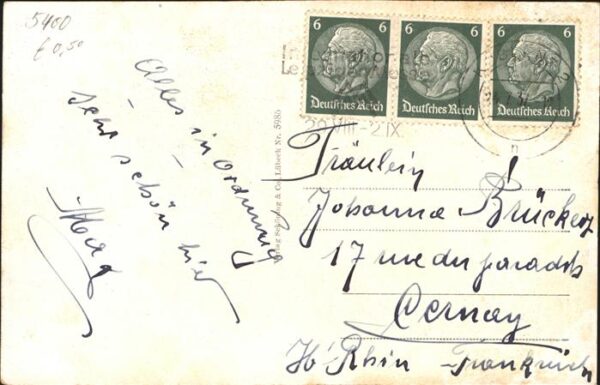 5400
€ 0,50
6 6
6 6
6 6
Deutsches Reich
Deutsches Reich
Deutsches Reich
29.VIII-2.IX
Alles in Ordnung
sehr schön hier
Verlag Schöning & Co, Lübeck Nr. 5980
Fräulein
Johanna Brückerz
17 rue du paradis
Cernay
Ht Rhin - Frankreich